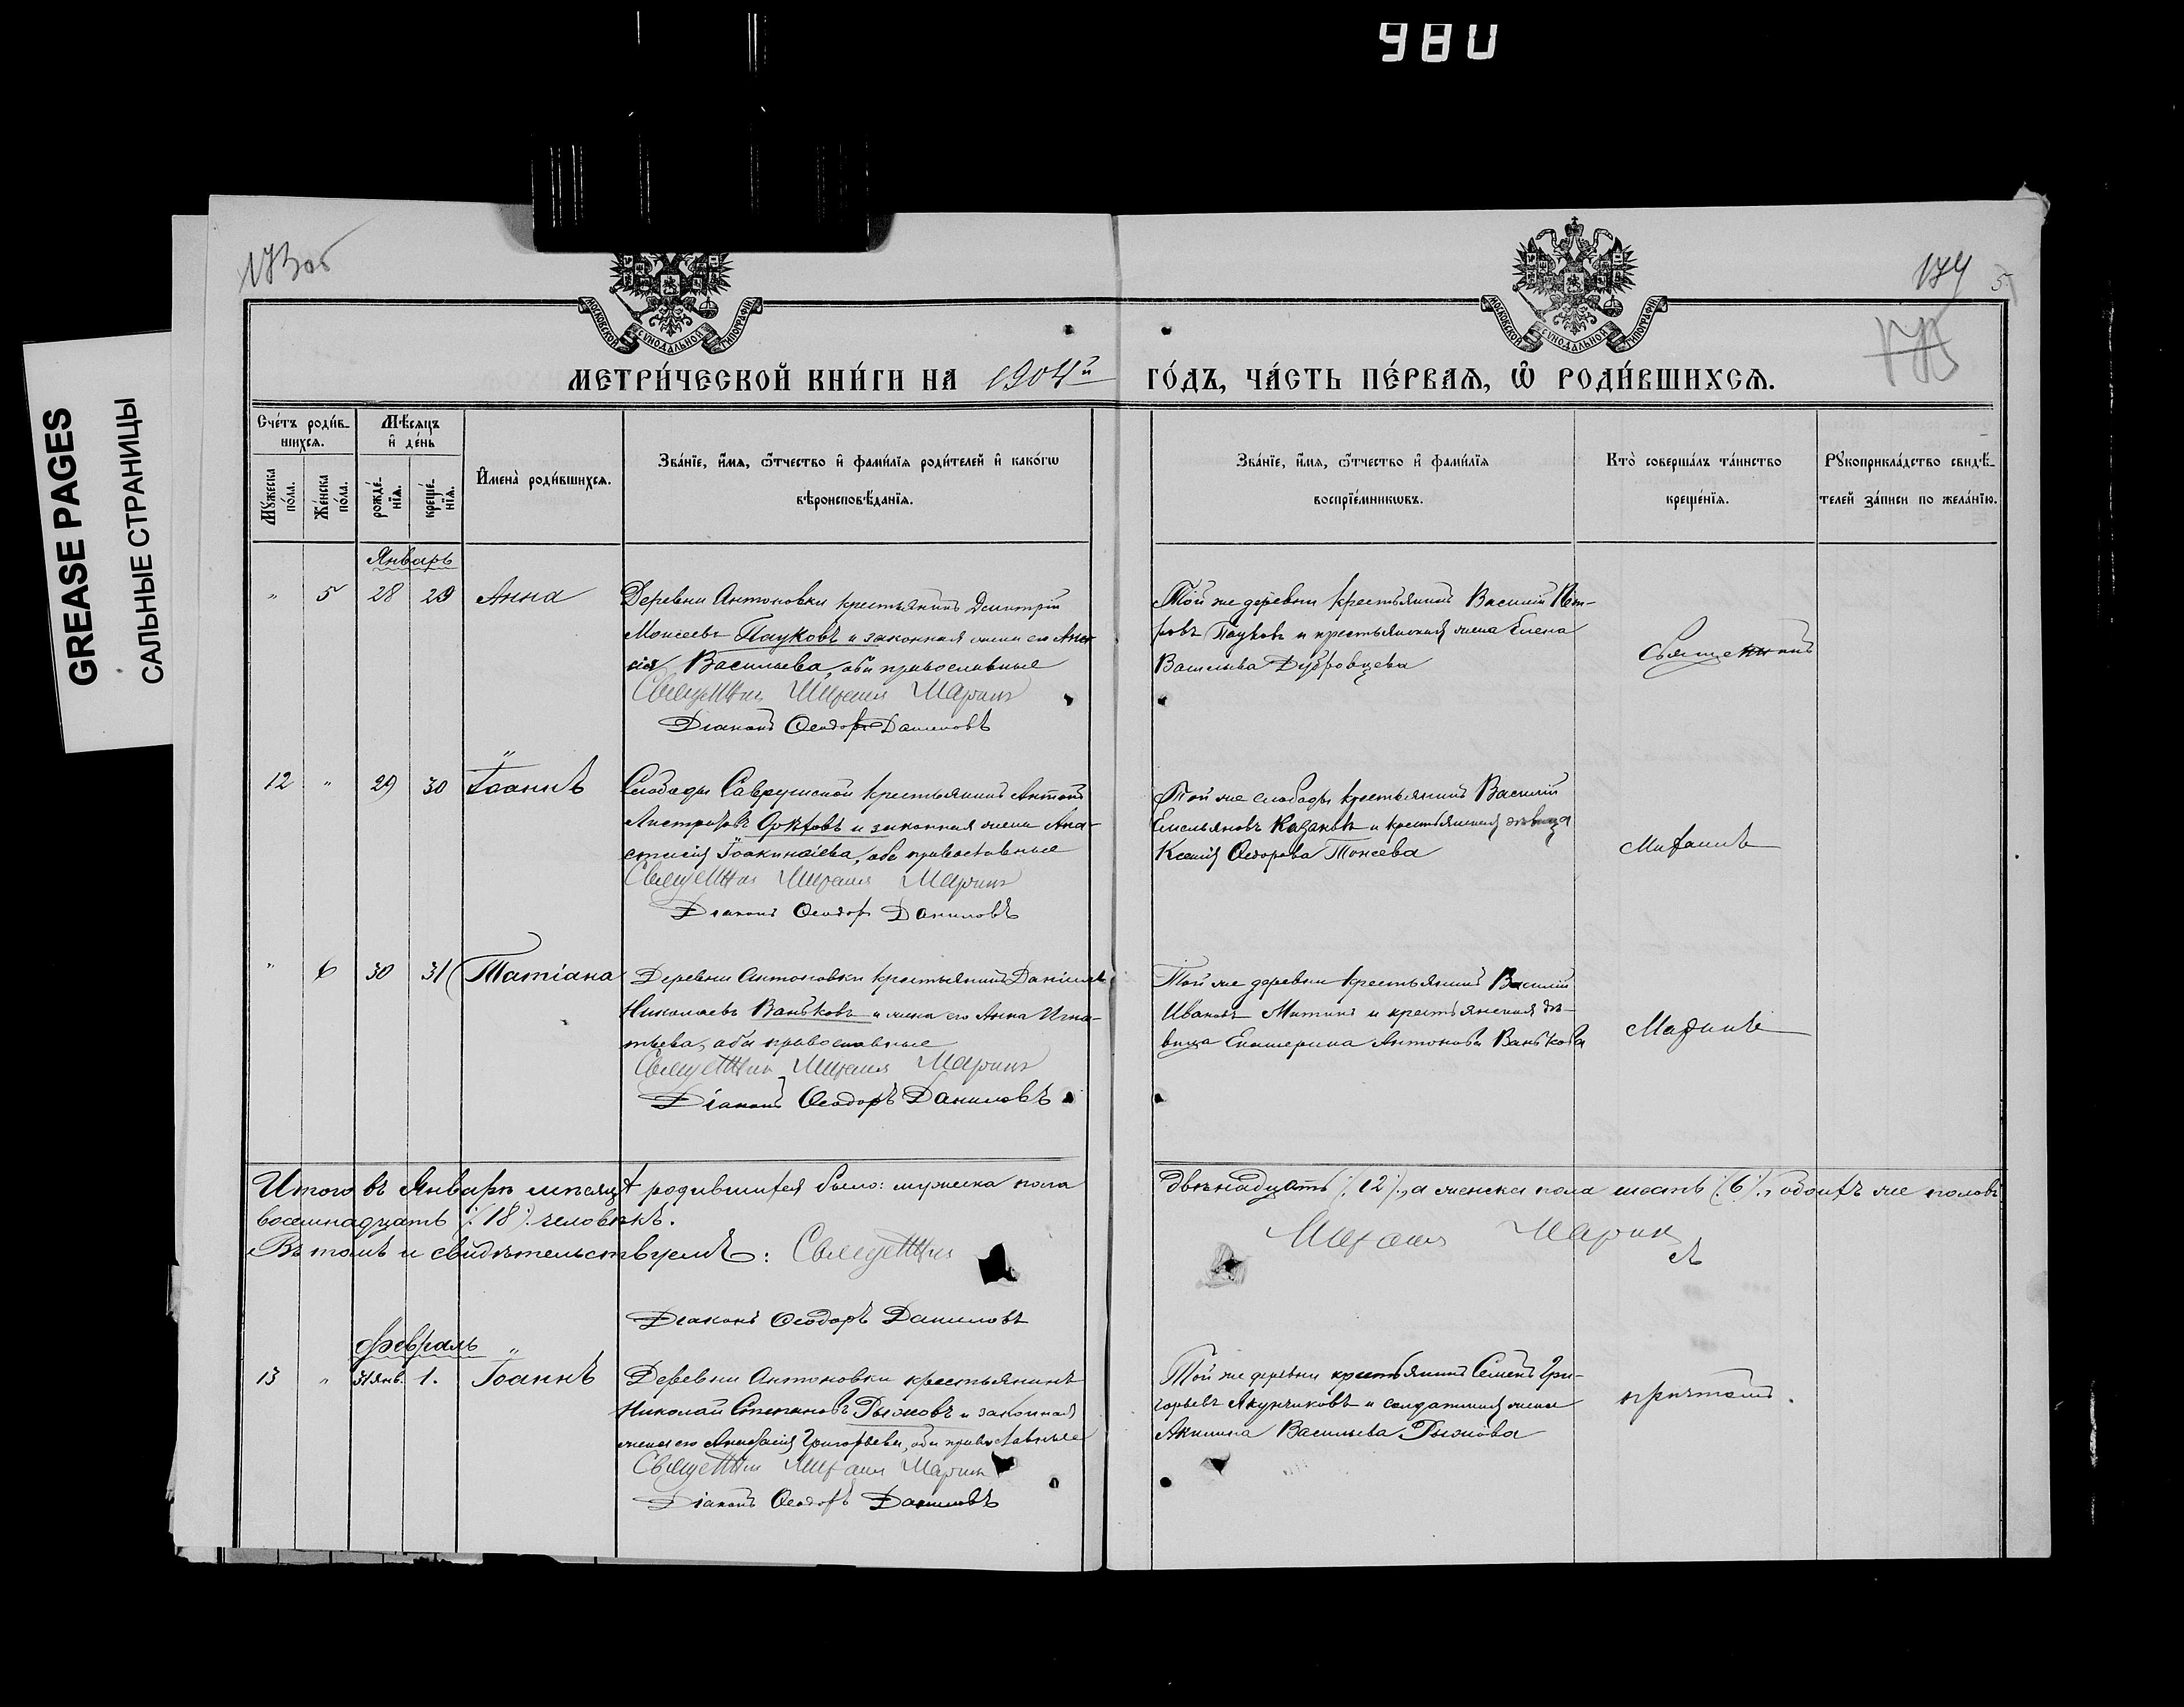 980
GREASE PAGES
САЛЬНЫЕ СТРАНИЦЫ
173об
174
5
МОСКОВСКОЙ СѴНОДАЛЬНОЙ ТИПОГРАФІИ
МОСКОВСКОЙ СѴНОДАЛЬНОЙ ТИПОГРАФІИ
МЕТРИ́ЧЕСКОЙ КНИ́ГИ НА 1904й ГО́ДЪ, ЧА́СТЬ ПЕ́РВАѦ, Ѡ РОДИ́ВШИХСѦ.
Сче́тъ роди́в-
шихсѧ.
Мѣ́сѧцъ
и҆ де́нь
Мꙋ́жеска
по́ла.
Же́нска
по́ла.
рожде́-
нїѧ.
креще́-
нїѧ.
И҆мена̀ роди́вшихсѧ.
Зва́нїе, и҆́мѧ, ѻ҆́тчество и҆ фами́лїѧ роди́телей и҆ како́гѡ
вѣроисповѣ́данїѧ.
Зва́нїе, и҆́мѧ, ѻ҆́тчество и҆ фами́лїѧ
воспрїе́мникѡвъ.
Кто̀ соверша́лъ та́инство
креще́нїѧ.
Рꙋкоприкла́дство свидѣ́-
телей за́писи по жела́нїю.
Январь
" 5 28 29 Анна
Деревни Антоновки крестьянинъ Димитрій
Моисеевъ Пауковъ и законная жена его
Васильева, оба православные
Священникъ Михаилъ Маринъ
Діаконъ Ѳеодоръ Даниловъ
Той же деревни крестьянинъ Василій Пет-
ровъ Пауковъ и крестьянская жена Елена
Васильева Дубровцева
Священникъ
12 " 29 30 Іоаннъ
Слободы Саврушской крестьянинъ Антонъ
и законная жена Ана-
стасія оба православные
Священникъ Михаилъ Маринъ
Діаконъ Ѳеодоръ Даниловъ
Той же слободы крестьянинъ Василій
Емельяновъ Казаковъ и крестьянская дѣвица
Ксенія Ѳедорова
Михаилъ
" 6 30 31 Татіана
Деревни Антоновки крестьянинъ Даніилъ
Николаевъ Ваньковъ и жена его Анна Игна-
тьева, оба православные
Священникъ Михаилъ Маринъ
Діаконъ Ѳеодоръ Даниловъ
Той же деревни крестьянинъ Василій
Ивановъ Митинъ и крестьянская дѣ-
вица Екатерина Антонова Ванькова
Маринъ
Итого въ Январѣ мѣсяцѣ родившихся было: мужеска пола двѣнадцать (12), а женска пола шесть (6), обоихъ же половъ
восемнадцать (18) человѣкъ.
Въ томъ и свидѣтельствуемъ: Священникъ Михаилъ Маринъ
Діаконъ Ѳеодоръ Даниловъ
Февраль
13 " 31 Янв. 1. Іоаннъ
Деревни Антоновки крестьянинъ
Николай Степановъ Рыжовъ и законная
жена его Анастасія Григорьева, оба православные
Священникъ Михаилъ Маринъ
Діаконъ Ѳеодоръ Даниловъ
Той же деревни крестьянинъ Семенъ Гри-
горьевъ Акунчиковъ и солдатская жена
Акилина Васильева Рыжова
причтомъ.